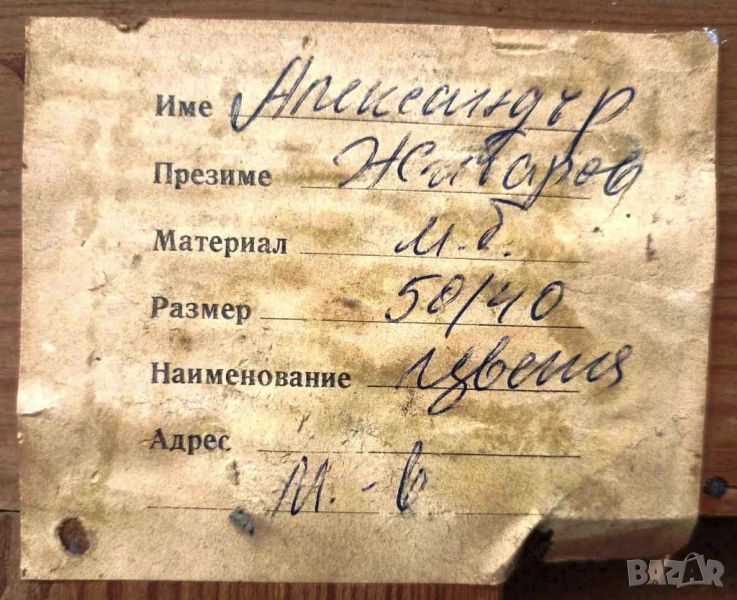 Име Александър
Презиме Житаров
Материал м.б.
Размер 50/40
Наименование Цветя
Адрес
М.-в
BAZAR